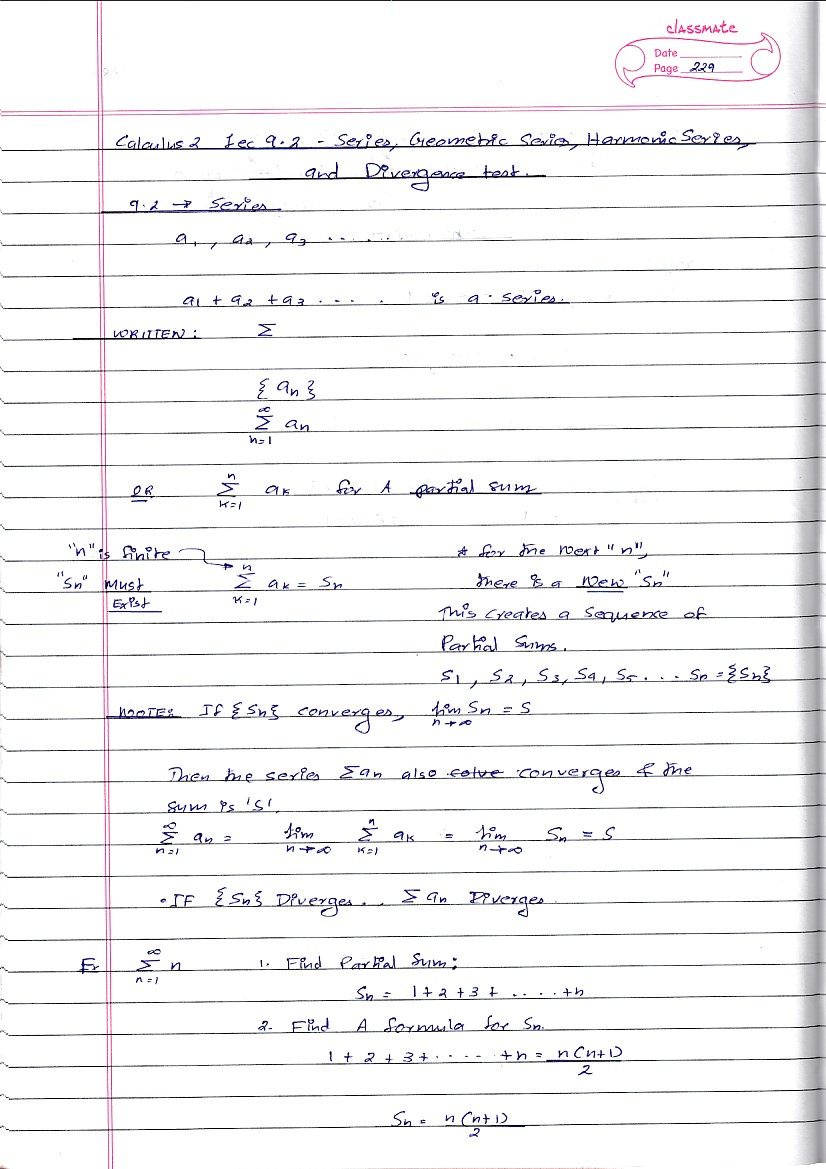 classmate
Date
Page 229
Calculus 2 Lec 9.2 - Series, Geometric Series, Harmonic Series,
and Divergence test.
9.2 → Series
a₁, a₂, a₃ ......
a₁ + a₂ + a₃ .... is a series.
WRITTEN: Σ
{an}
∞
Σ an
n=1
OR n
Σ aK for A partial sum
K=1
"n" is finite → n * for the next "n",
"Sn" Must Σ aK = Sn there is a New "Sn"
Exist K=1
This creates a sequence of
Partial Sums.
S1, S2, S3, S4, S5... Sn = {Sn}
NOTE: If {Sn} converges, lim Sn = S
n→∞
Then the series Σan also converges & the
sum is 'S'.
∞ n
Σ an = lim Σ aK = lim Sn = S
n=1 n→∞ K=1 n→∞
• IF {Sn} Diverges.. Σ an Diverges
Ex ∞
Σ n 1. Find Partial Sum:
n=1
Sn = 1+2+3+.....+n
2. Find A formula for Sn.
1 + 2 + 3 + .... + n = n(n+1)
2
Sn = n(n+1)
2